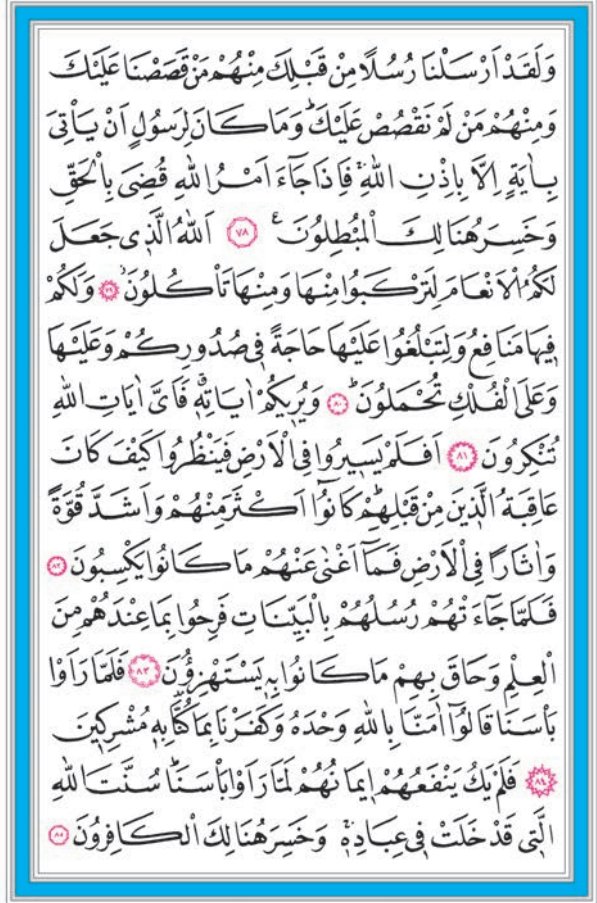 وَلَقَدْ اَرْسَلْنَا رُسُلًا مِنْ قَبْلِكَ مِنْهُمْ مَنْ قَصَصْنَا عَلَيْكَ
وَمِنْهُمْ مَنْ لَمْ نَقْصُصْ عَلَيْكَۜ وَمَا كَانَ لِرَسُولٍ اَنْ يَاْتِيَ
بِاٰيَةٍ اِلَّا بِاِذْنِ اللّٰهِۚ فَاِذَا جَٓاءَ اَمْرُ اللّٰهِ قُضِيَ بِالْحَقِّ
وَخَسِرَ هُنَالِكَ الْمُبْطِلُونَ ع ﴿٧٨﴾ اَللّٰهُ الَّذ۪ي جَعَلَ
لَكُمُ الْاَنْعَامَ لِتَرْكَبُوا مِنْهَا وَمِنْهَا تَاْكُلُونَۘ ﴿٧٩﴾ وَلَكُمْ
ف۪يهَا مَنَافِعُ وَلِتَبْلُغُوا عَلَيْهَا حَاجَةً ف۪ي صُدُورِكُمْ وَعَلَيْهَا
وَعَلَى الْفُلْكِ تُحْمَلُونَۜ ﴿٨٠﴾ وَيُر۪يكُمْ اٰيَاتِه۪ۗ فَاَيَّ اٰيَاتِ اللّٰهِ
تُنْكِرُونَ ﴿٨١﴾ اَفَلَمْ يَس۪يرُوا فِي الْاَرْضِ فَيَنْظُرُوا كَيْفَ كَانَ
عَاقِبَةُ الَّذ۪ينَ مِنْ قَبْلِهِمْۜ كَانُٓوا اَكْثَرَ مِنْهُمْ وَاَشَدَّ قُوَّةً
وَاٰثَارًا فِي الْاَرْضِ فَمَٓا اَغْنٰى عَنْهُمْ مَا كَانُوا يَكْسِبُونَ ﴿٨٢﴾
فَلَمَّا جَٓاءَتْهُمْ رُسُلُهُمْ بِالْبَيِّنَاتِ فَرِحُوا بِمَا عِنْدَهُمْ مِنَ
الْعِلْمِ وَحَاقَ بِهِمْ مَا كَانُوا بِه۪ يَسْتَهْزِؤُ۫نَ ﴿٨٣﴾ فَلَمَّا رَاَوْا
بَاْسَنَا قَالُٓوا اٰمَنَّا بِاللّٰهِ وَحْدَهُ وَكَفَرْنَا بِمَا كُنَّا بِه۪ مُشْرِك۪ينَ
﴿٨٤﴾ فَلَمْ يَكُ يَنْفَعُهُمْ ا۪يمَانُهُمْ لَمَّا رَاَوْا بَاْسَنَاۜ سُنَّتَ اللّٰهِ
الَّت۪ي قَدْ خَلَتْ ف۪ي عِبَادِه۪ۚ وَخَسِرَ هُنَالِكَ الْكَافِرُونَ ﴿٨٥﴾